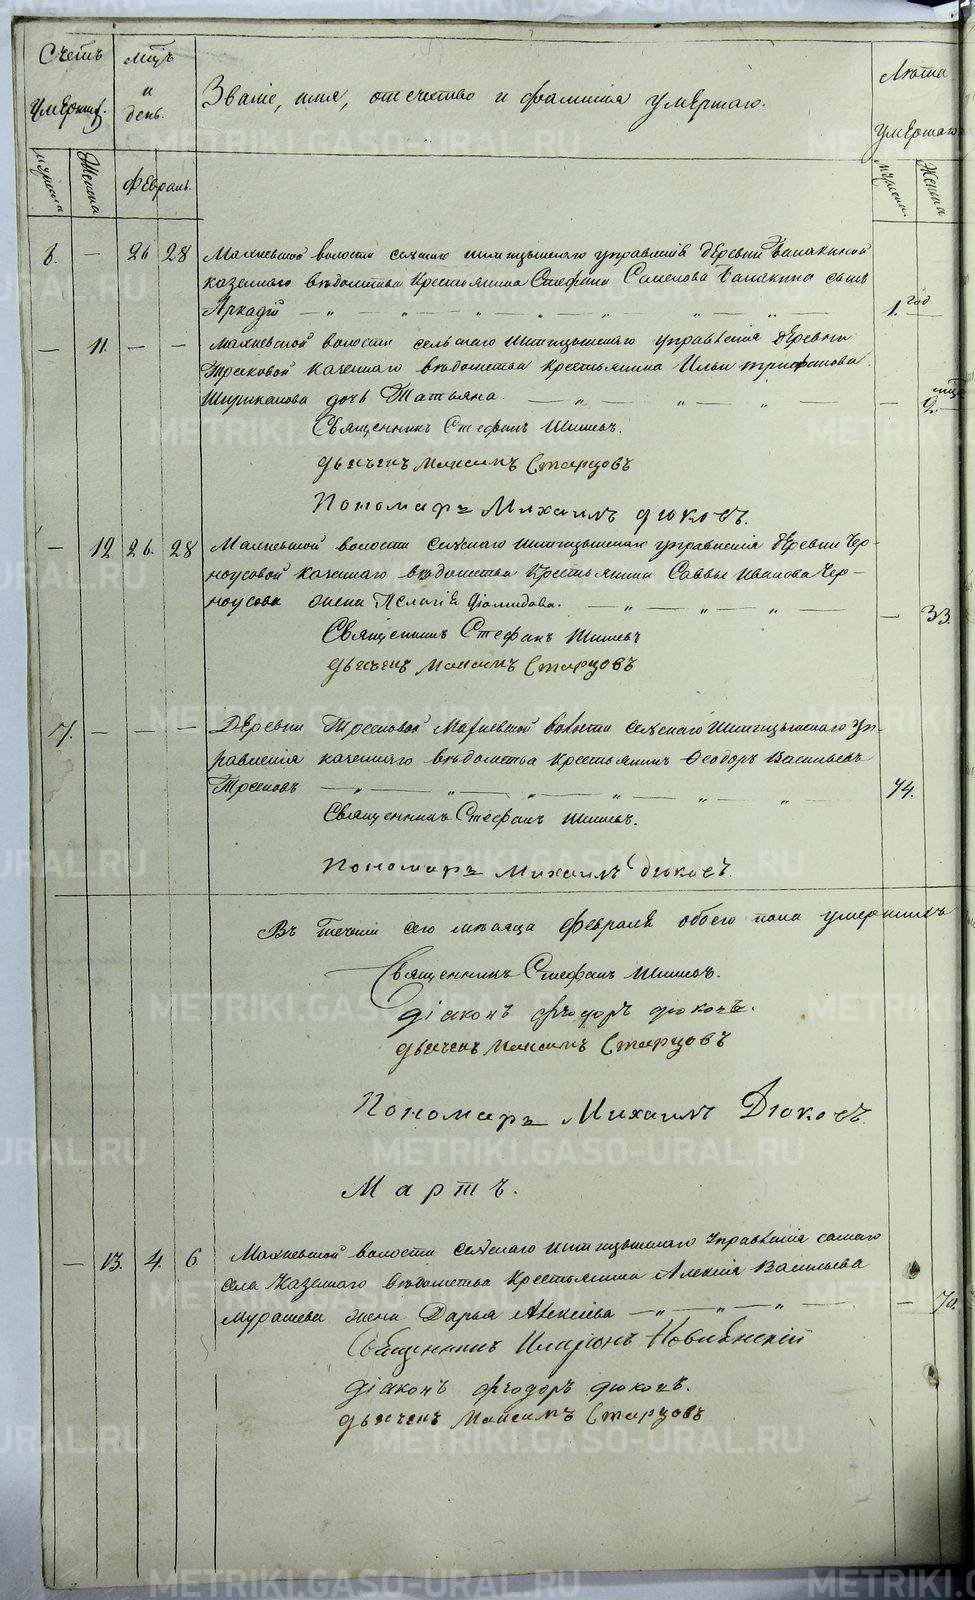 Счетъ умерших.
мцъ и день.
Званіе, имя, отечество и фамилія умершаго.
Лѣта умершаго
мужска
Женска
Февраль.
мужска.
Женска
6. — 26 28 Махневской волости сельскаго управленія деревни
казеннаго вѣдомства крестьянина Стефана Савелова сынъ
Аркадій — „ — „ — „ — „ — „ — 1. год
— 11. — — Махневской волости сельскаго управленія деревни
Трескової казеннаго вѣдомства крестьянина Ильи Трифанова
Ширикалова дочь Татьяна. — „ — „ — „ — — 2. мца
Священникъ Стефанъ Шишевъ.
дьячекъ Максимъ Старцовъ
Пономарь Михаилъ Дюковъ.
— 12 26. 28 Махневской волости сельскаго управленія деревни Чер-
ноусовой казеннаго вѣдомства крестьянина Саввы Иванова Чер-
ноусова жена Пелагія Діомидова. — „ — „ — „ — — 33.
Священникъ Стефанъ Шишевъ
дьячекъ Максимъ Старцовъ
7. — — — Деревни Трескової Махневской волости сельскаго Уп-
равленія казеннаго вѣдомства крестьянинъ Ѳеодоръ Васильевъ
Тресковъ — „ — „ — „ — „ — „ — „ — 74.
Священникъ Стефанъ Шишевъ.
Пономарь Михаилъ Дюковъ.
Въ теченіи сего мѣсяца февраля обоего пола умершихъ
Священникъ Стефанъ Шишевъ.
діаконъ Ѳеодоръ Дюковъ.
дьячекъ Максимъ Старцовъ
Пономарь Михаилъ Дюковъ.
Мартъ.
— 13. 4. 6. Махневской волости сельскаго управленія самаго
села казеннаго вѣдомства крестьянина Алексія Васильева
Мурашева жена Дарья Алексіева — „ — „ — „ — — 70.
Священникъ Иларіонъ
діаконъ Ѳеодоръ Дюковъ.
дьячекъ Максимъ Старцовъ
METRIKI.GASO-URAL.RU